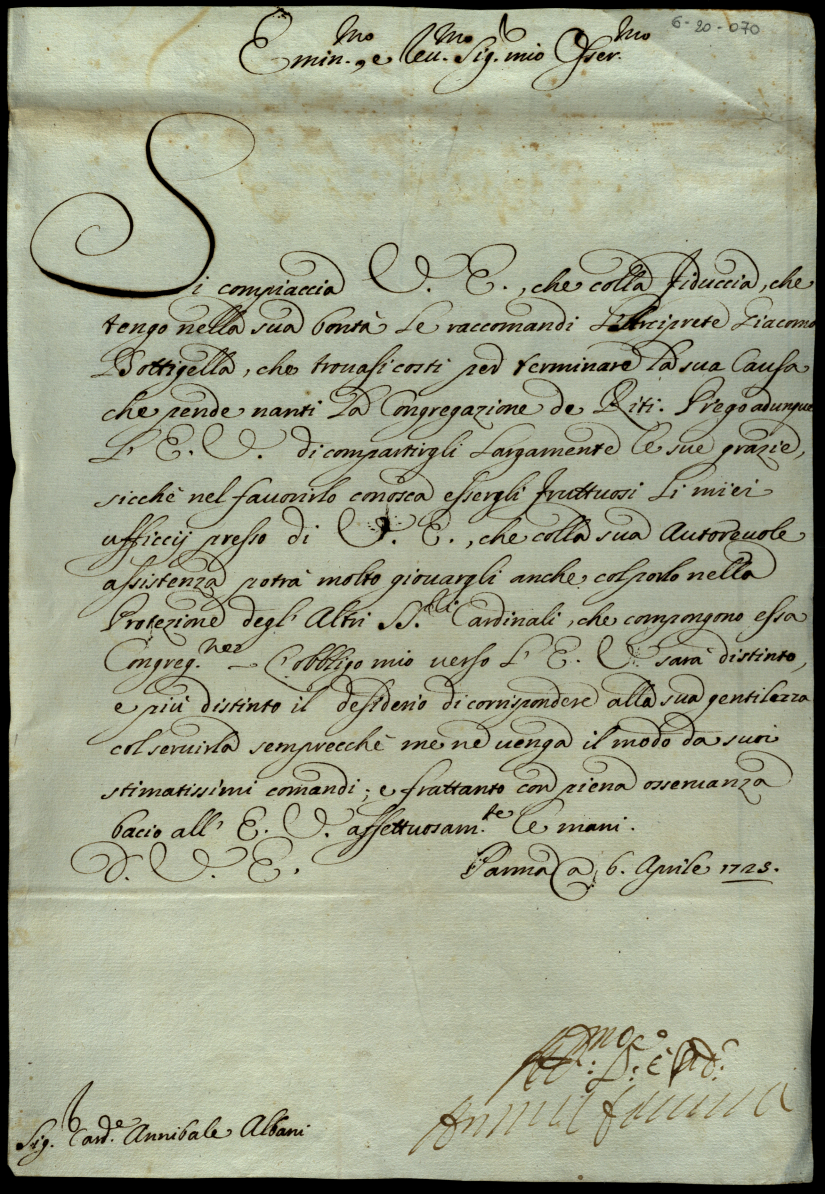 6-20-070
Emin.mo, e Reu.mo Sig.r mio Osser.mo
Si compiaccia V. E., che colla fiduccia, che
tengo nella sua bontà Le raccomandi L'Arciprete Giacomo
Bottigella, che trouasi costi per terminare la sua Causa
che pende nanti la Congregazione de Riti. Prego adunque
L' E. V. di compartirgli Largamente le sue grazie,
sicchè nel fauorirlo conosca essergli fruttuosi Li miei
ufficcij presso di V. E., che colla sua Autoreuole
assistenza potrà molto giouargli anche col porlo nella
Protezione degl' Altri SS.ri Cardinali, che compongono essa
Congreg.ne L'obbligo mio verso L' E. V. sarà distinto,
e più distinto il desiderio di corrispondere alla sua gentilezza
col seruirla sempreçchè me ne uenga il modo da suoi
stimatissimi comandi; e frattanto con piena osseruanza
bacio all' E. V. affettuosam.te le mani.
D. V. E. Parma a 6. Aprile 1723.
Sig.r Card.e Annibale Albani